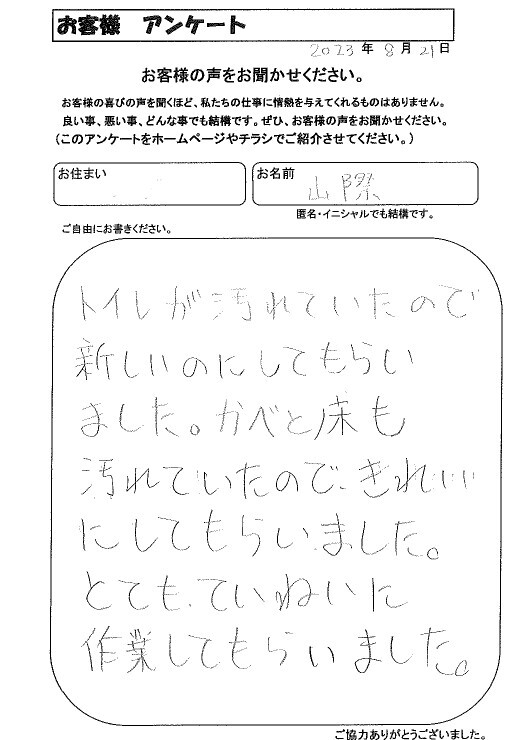 お客様 アンケート
2023年8月21日
お客様の声をお聞かせください。
お客様の喜びの声を聞くほど、私たちの仕事に情熱を与えてくれるものはありません。
良い事、悪い事、どんな事でも結構です。ぜひ、お客様の声をお聞かせください。
(このアンケートをホームページやチラシでご紹介させてください。)
お住まい
お名前 山際
匿名・イニシャルでも結構です。
ご自由にお書きください。
トイレが汚れていたので
新しいのにしてもらい
ました。かべと床も
汚れていたので、きれい
にしてもらいました。
とても、ていねいに
作業してもらいました。
ご協力ありがとうございました。